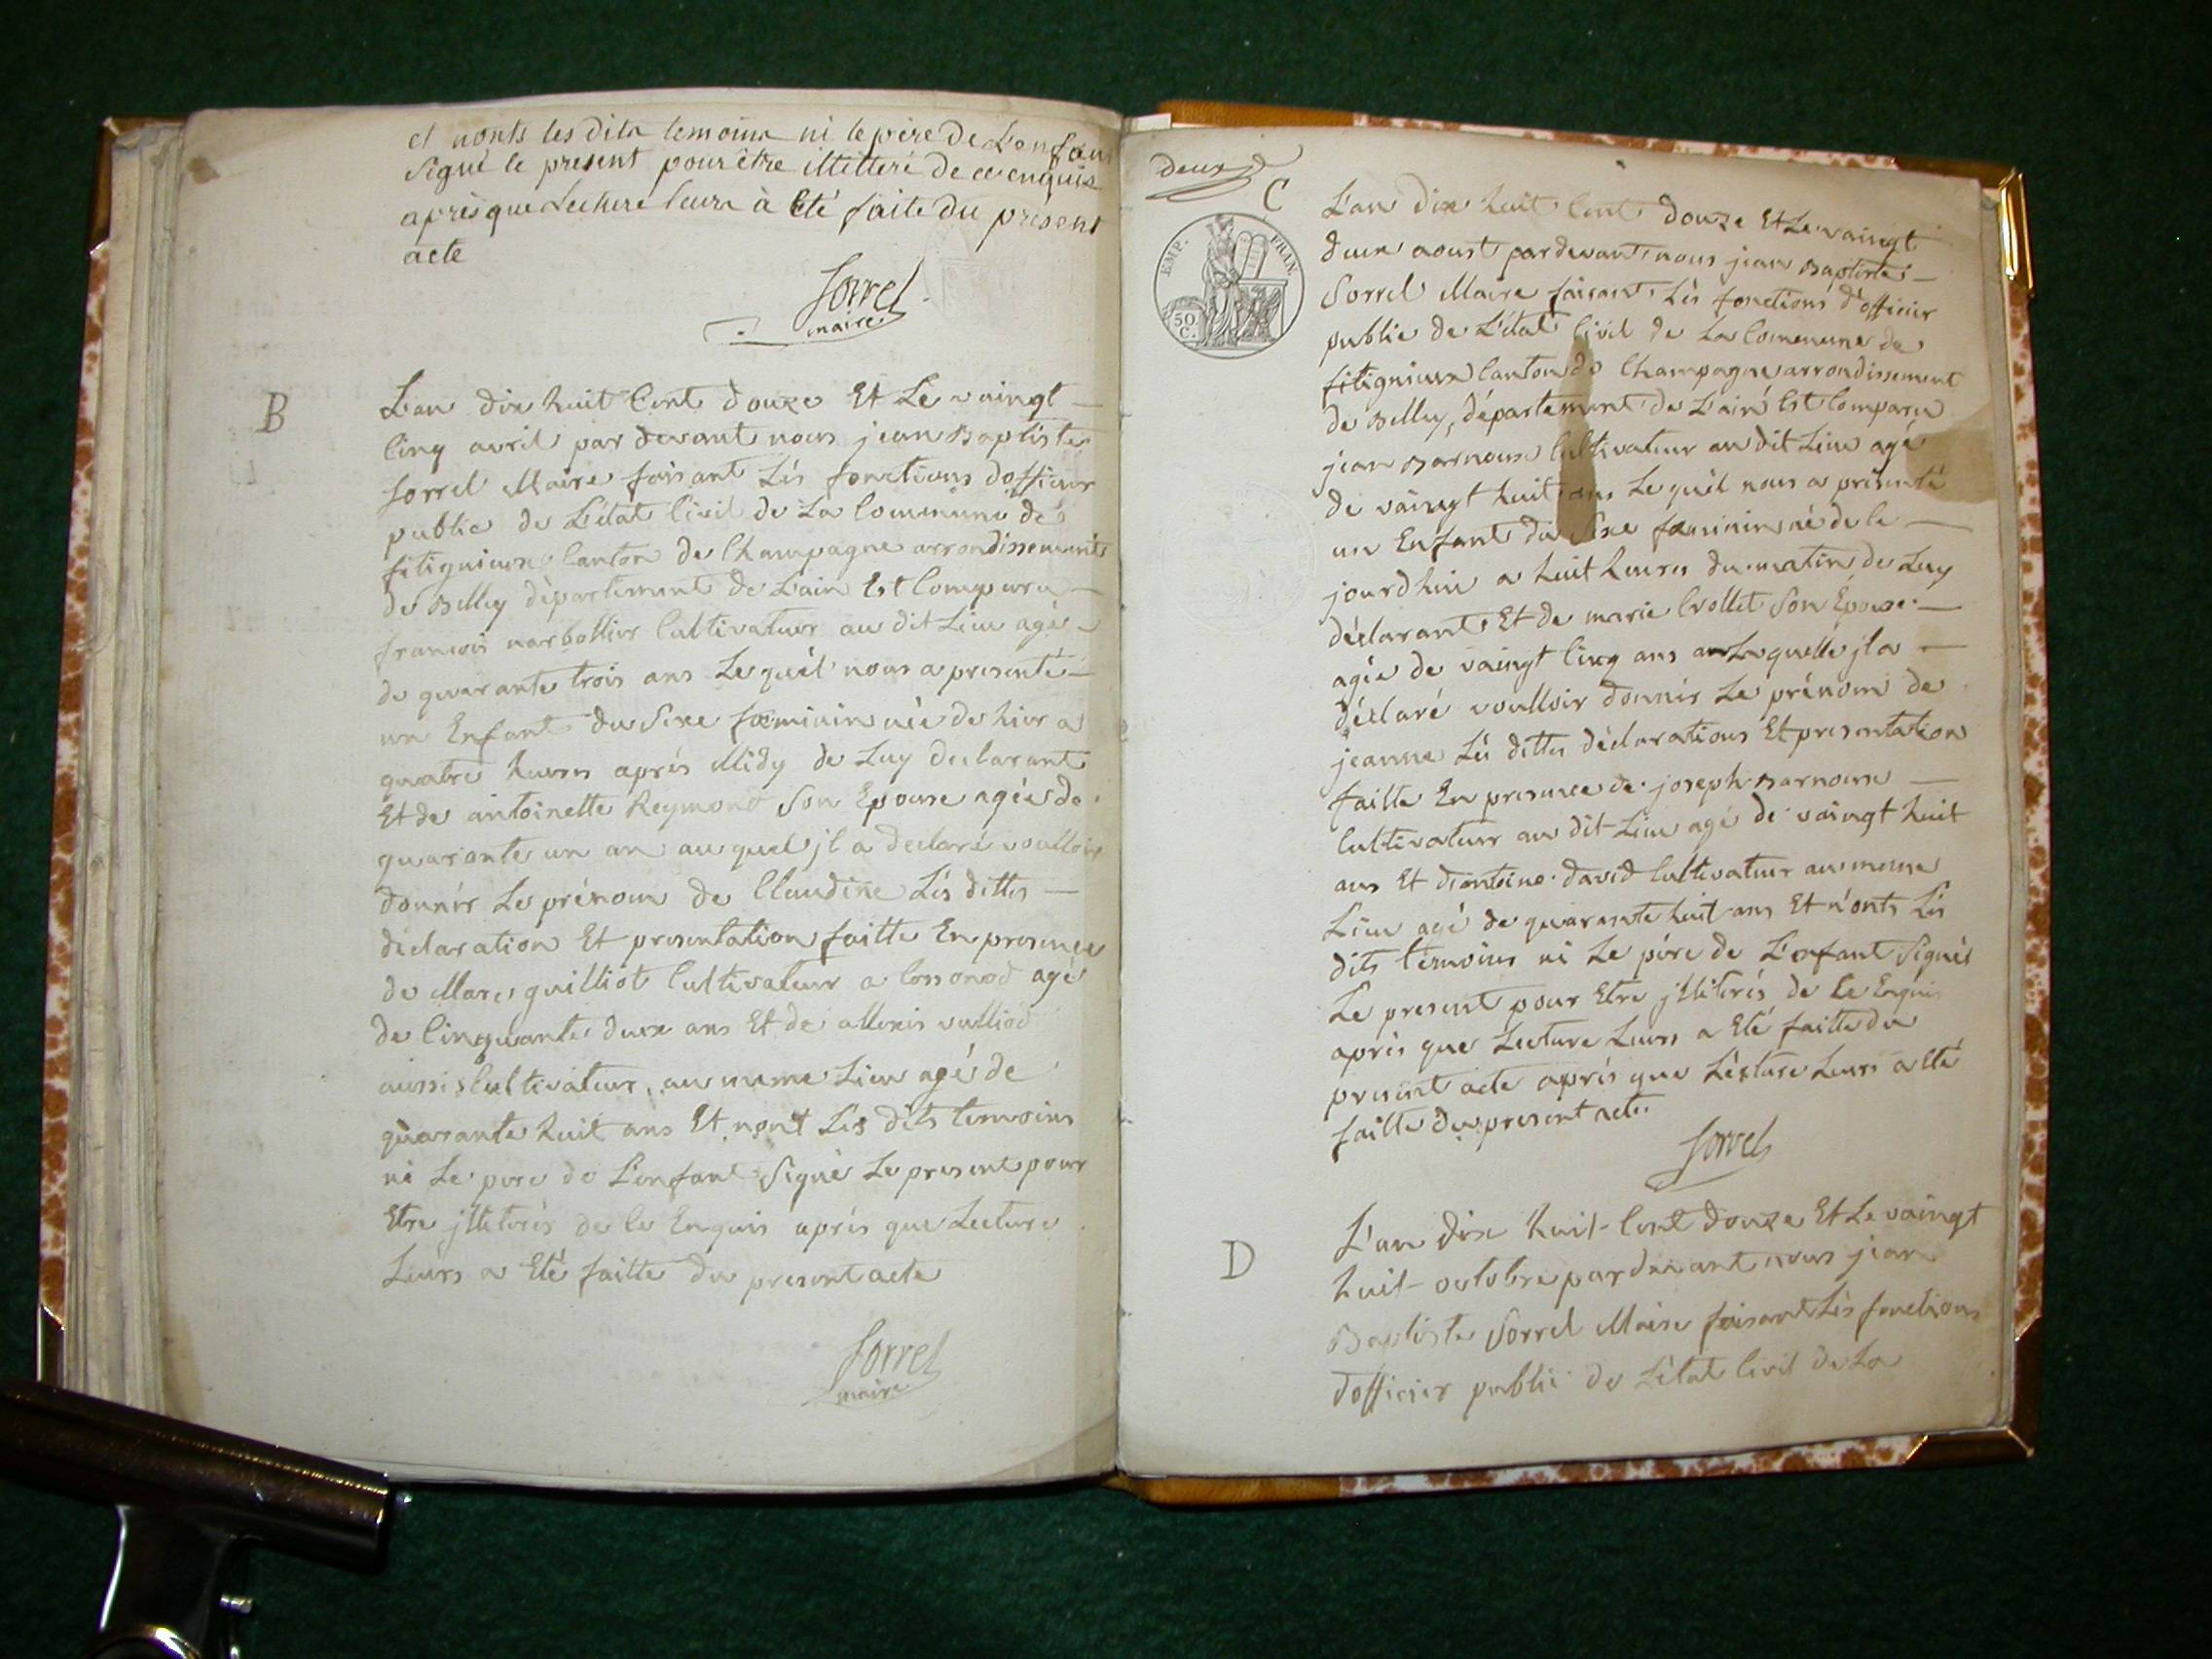 et nonts les dits temoins ni le père de L'enfan
signé le present pour être illetteré de ce enquis
après que Lecture leurs à Eté faite du présent
acte
Sorrel
maire
B
L'an dix huit Cent douze Et Le vaingt
Cinq avril par devant nous jean Baptiste
Sorrel Maire faisant Lés fonctions dofficier
public de L'état Civil de La Commune de
fitignieux Canton de Champagne arrondissement
de Belley département de L'ain Est Comparu
francois narbollier Cultivateur au dit Lieu agé
de quarante trois ans Le quél nous a presenté
un Enfant du Sexe fœminin née de hier a
quatre heures aprés Midy de Luy declarant
Et de antoinette Reymond Son Epouse agée de
quarante un an au quel jl a declaré voulloir
donnér Le prénom de Claudine Lés dittes
déclaration Et presentation faitte En presence
de Marc guilliot Cultivateur a Lossonod agé
de Cinquante deux ans Et de allexis vulliod
aussi Cultivateur au meme Lieu agé de
quarante huit ans Et nont Lés dits temoins
ni Le pere de L'enfant Signé Le present pour
Etre jlliterés de Ce Enquis aprés que Lecture
Leurs a Eté faitte du present acte
Sorrel
maire
deux
C
EMP. FRAN.
50 C.
L'an dix huit Cent douze Et Le vaingt
deux aoust pardevant nous jean Baptiste
Sorrel Maire faisant Lés fonctions d'officier
public de L'état Civil de La Commune de
fitignieux Canton de Champagne arrondissement
de Belley, département de L'ain Est Comparu
jean Barnoux Cultivateur au dit Lieu agé
de vaingt huit ans Le quél nous a présenté
un Enfant du Sexe fœminin né de ce
jourdhui a huit heures du matin de Luy
déclarant Et de marie Crollet Son Epouse
agée de vaingt Cinq ans a Laquelle jl a
déclaré voulloir donnér Le prénom de
jeanne Lés dittes déclarations Et presentation
faitte En presence de joseph Barnoux
Cultivateur au dit Lieu agé de vaingt huit
ans Et d'antoine david Cultivateur au meme
Lieu agé de quarante huit ans Et n'onts Lés
dits témoins ni Le pére de L'enfant Signés
Le present pour Etre jlliterés de Ce Enquis
aprés que Lecture Leurs a Eté faitte du
present acte aprés que Lécture Leurs a Eté
faitte du present acte
Sorrel
D
L'an dix huit Cent douze Et Le vaingt
huit octobre par devant nous jean
Baptiste Sorrel Maire faisant Lés fonctions
d'officier public de L'état Civil de La